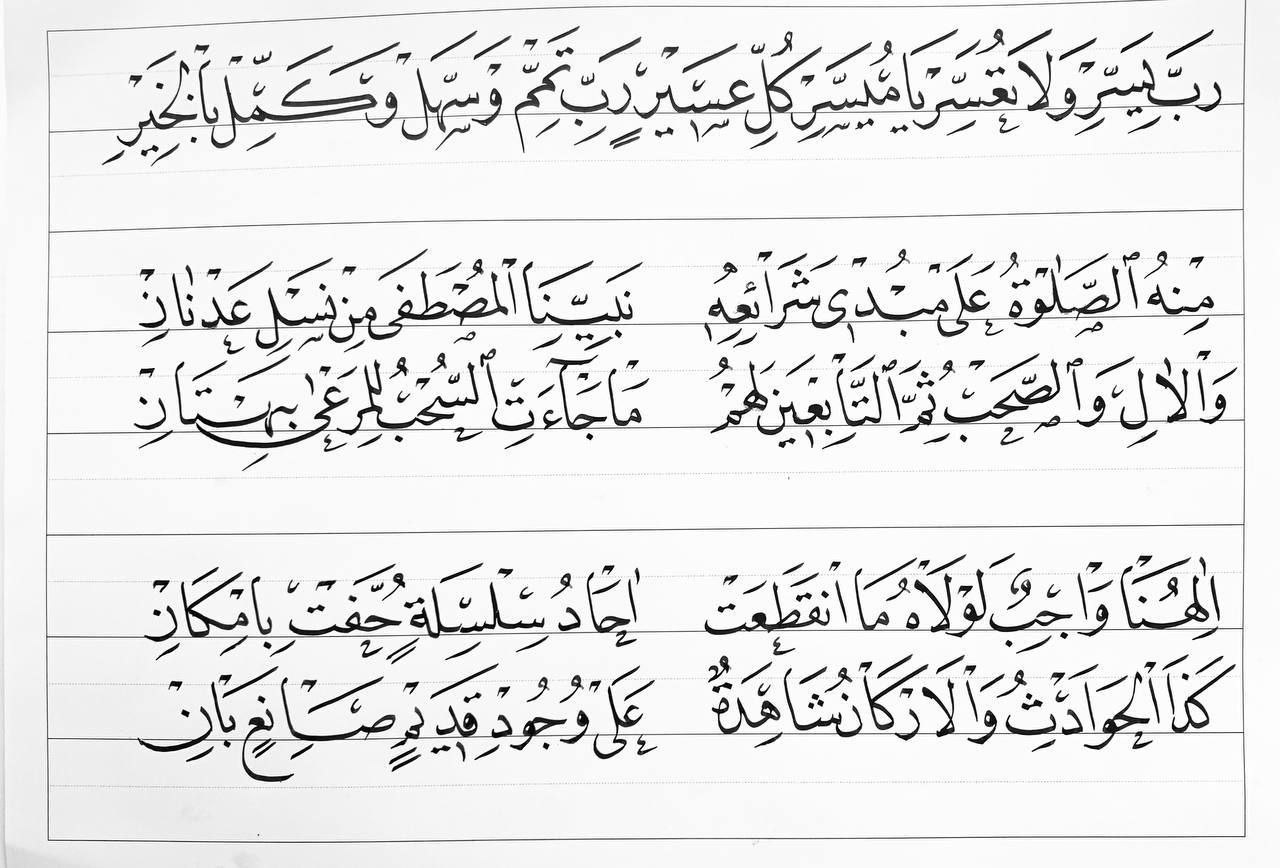 رَبِّ يَسِّرْ وَلَا تُعَسِّرْ يَا مُيَسِّرَ كُلِّ عَسِيْرٍ رَبِّ تَمِّمْ وَسَهِّلْ وَكَمِّلْ بِالْخَيْرِ
مِنْهُ ٱلصَّلٰوةُ عَلَى مُبْدِى شَرَائِعِهِ نَبِيِّنَا الْمُصْطَفَى مِنْ نَسْلِ عَدْنَانِ
وَالْاٰلِ وَٱلصَّحْبِ ثُمَّ ٱلتَّابِعِيْنَ لَهُمْ مَا جَآءَتِ ٱلسُّحْبُ لِلْمَرْعٰى بِتَهْتَانِ
اِلٰهُنَا وَاجِبٌ لَوْلَاهُ مَا انْقَطَعَتْ اٰحَادُ سِلْسِلَةٍ حُفَّتْ بِاِمْكَانِ
كَذَا الْحَوَادِثُ وَالْاَرْكَانُ شَاهِدَةٌ عَلَى وُجُودِ قَدِيْمٍ صَانِعٍ بَانِ